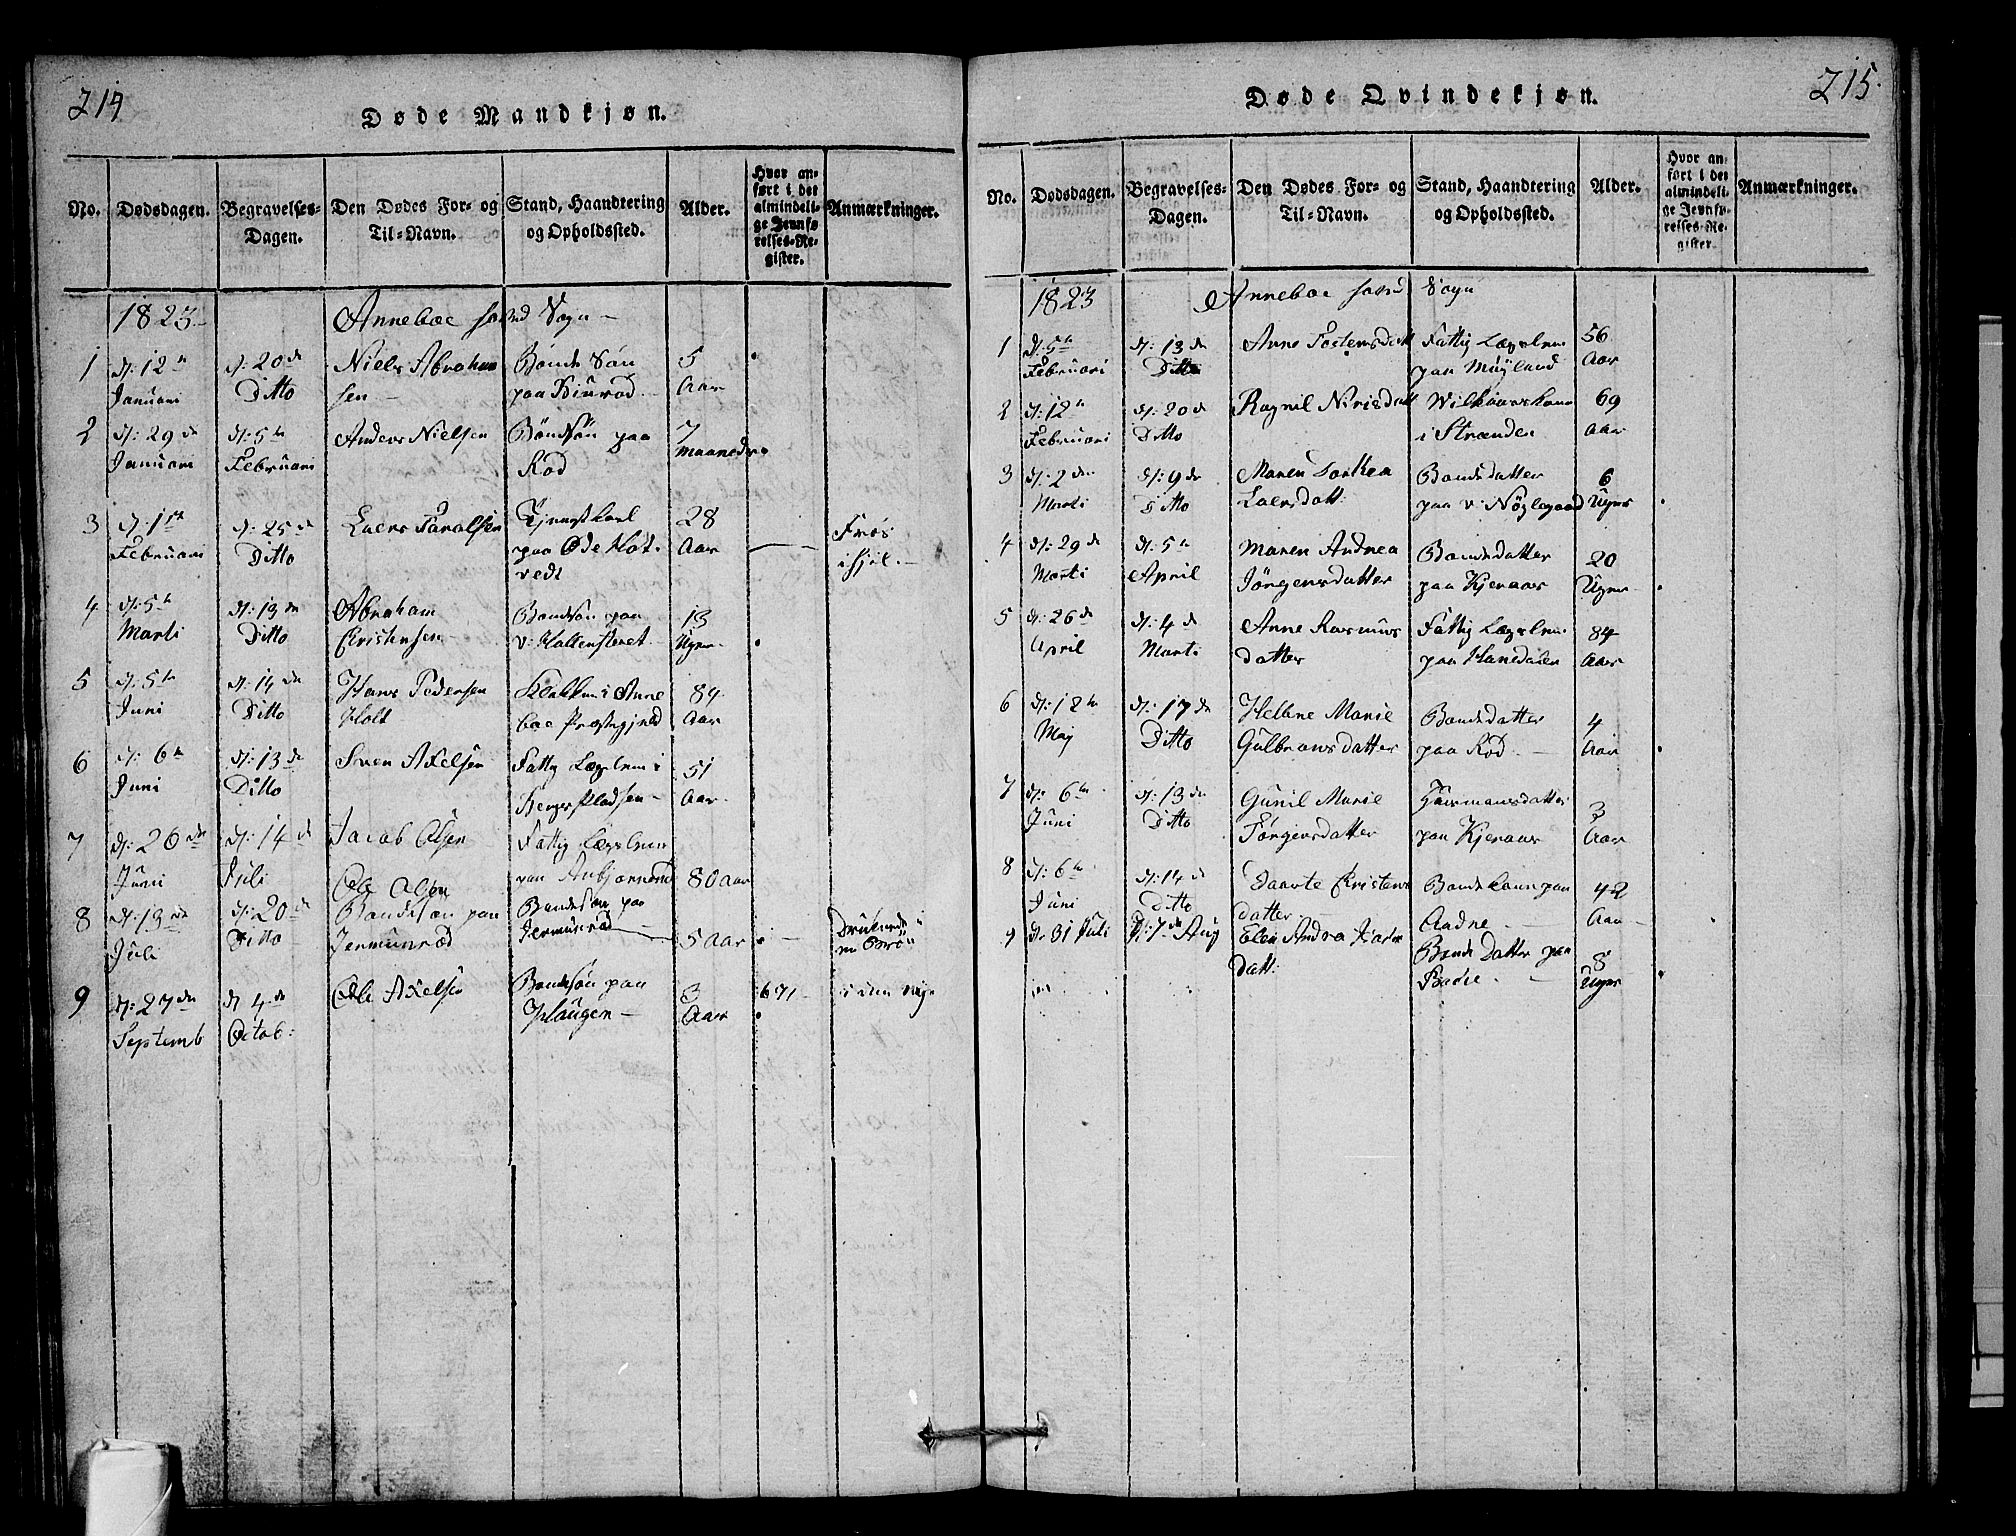 214
Døde Mandkjøn.
No. Dødsdagen. Begravelses-Dagen. Den Dødes For- og Til-Navn. Stand, Haandtering og Opholdssted. Alder. Hvor anført i det almindelige Jevnførelses-Register. Anmærkninger.
1823 Anneboe Sogn
1 d: 12te d: 20de Niels Abraham Bonde Søn 5
Januari Ditto sen paa Aar
2 d: 29de d: 5te Anders Nielsen Bondesøn paa 7
Januari Februari Rød Maaneder
3 d: 1ste d: 25de Laers Taralsen Tjenestkarl 28 Frøs
Februari Ditto paa Øde Holt- Aar ihjel.
vedt
4 d: 5te d: 13de Abraham Bondesøn paa 13
Marti Ditto Kristensen Uger
5 d: 5te d: 14de Hans Pedersen Klokker i Anne 89
Juni Ditto Holt boe Præstegjeld Aar
6 d: 6te d: 13de Sven Axelsen Fattig Lægslem i 51
Juni Ditto Aar
7 d: 26de d: 14de Jacob Olsen Fattig Lægslem
Juni Juli paa 80 Aar
Ole Olsen
8 d: 13de d: 20de Bondesøn paa Bondesøn paa
Juli Ditto Jermunrød Jermunrød 5 Aar Druknede i en Brøn
9 d: 27de d 4de Ole Axelsen Bondesøn paa 3 671
Septemb Octob: Haugen Aar
215.
Døde Qvindekjøn.
No. Dødsdagen. Begravelses-Dagen. Den Dødes For- og Til-Navn. Stand, Haandtering og Opholdssted. Alder. Hvor anført i det almindelige Jevnførelses-Register. Anmærkninger.
1823 Anneboe Sogn
1 d: 5te d: 13de Anne Tostensdatt Fattig Lægslem 56
Februari Ditto paa Myland Aar
2 d: 12te d: 20de Ragnil Nirisdatt Wilkaarskone 69
Februari Ditto i Stranden Aar
3 d: 2den d: 9de Maren Torkea Bondedatter 6
Marti Ditto Laersdatt: paa v: Nøglegaard Uger
4 d: 29de d: 5te Maren Andrea Bondedatter 20
Marti April Jørgensdatter paa Kjeraas Uger
5 d: 26de d: 4de Anne Rasmus Fattig Lægslem 84
April Marti datter paa Hanedalen Aar
6 d: 12te d: 17de Hellene Marie Bondedatter 4
Maj Ditto Gulbransdatter paa Rød Aar
7 d: 6te d: 13de Gunil Marie Huusmansdatter 3
Juni Ditto Jørgensdatter paa Kjeraas Aar
8 d: 6te d: 14de Daarte Kristens Bondekone paa 42
Juni Ditto datter Aadne Aar
9 d: 31 Juli d: 7de Aug Elen Andrea Bonde Datter paa 8
Datt: Uger